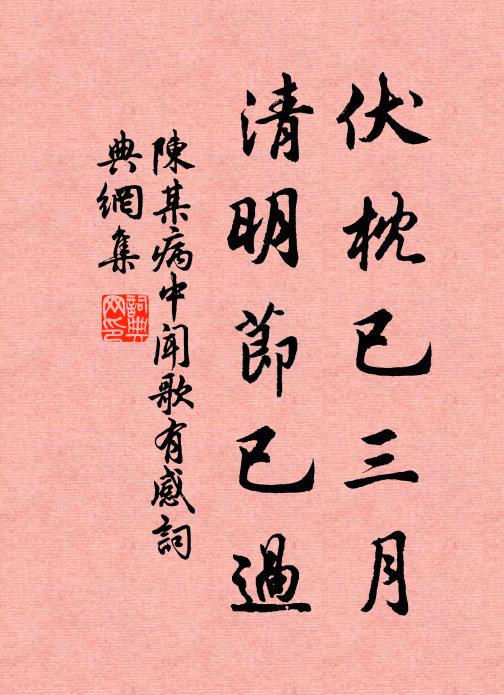 伏枕已三月
清明節已過
陳某病中聞歌有感詞
典網集
詞典
网印